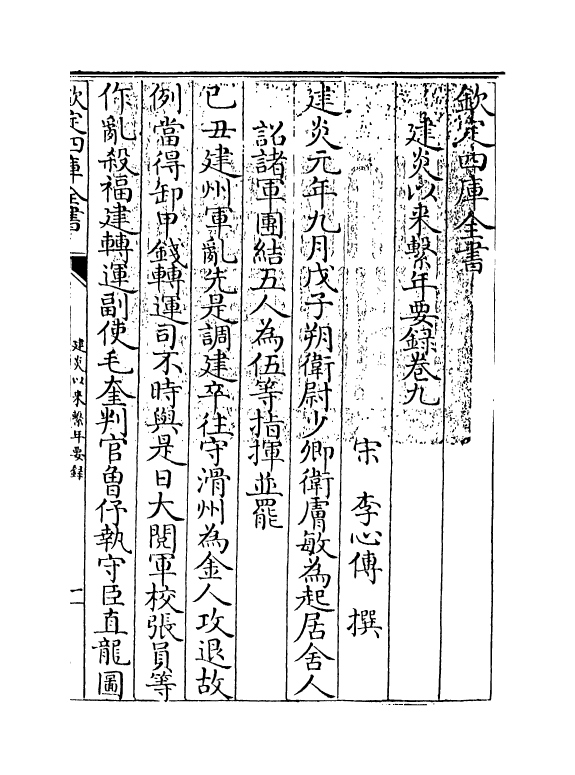 欽定四庫全書
建炎以來繫年要録卷九
宋 李心傳 撰
建炎元年九月戊子朔衛尉少卿衛膚敏為起居舍人
詔諸軍團結五人為伍等指揮並罷
已丑建州軍亂先是調建卒往守滑州為金人攻退故
例當得卸甲錢轉運司不時與是日大閱軍校張員等
作亂殺福建轉運副使毛奎判官魯伃執守臣直龍圖
欽定四庫全書
建炎以來繫年要録
一